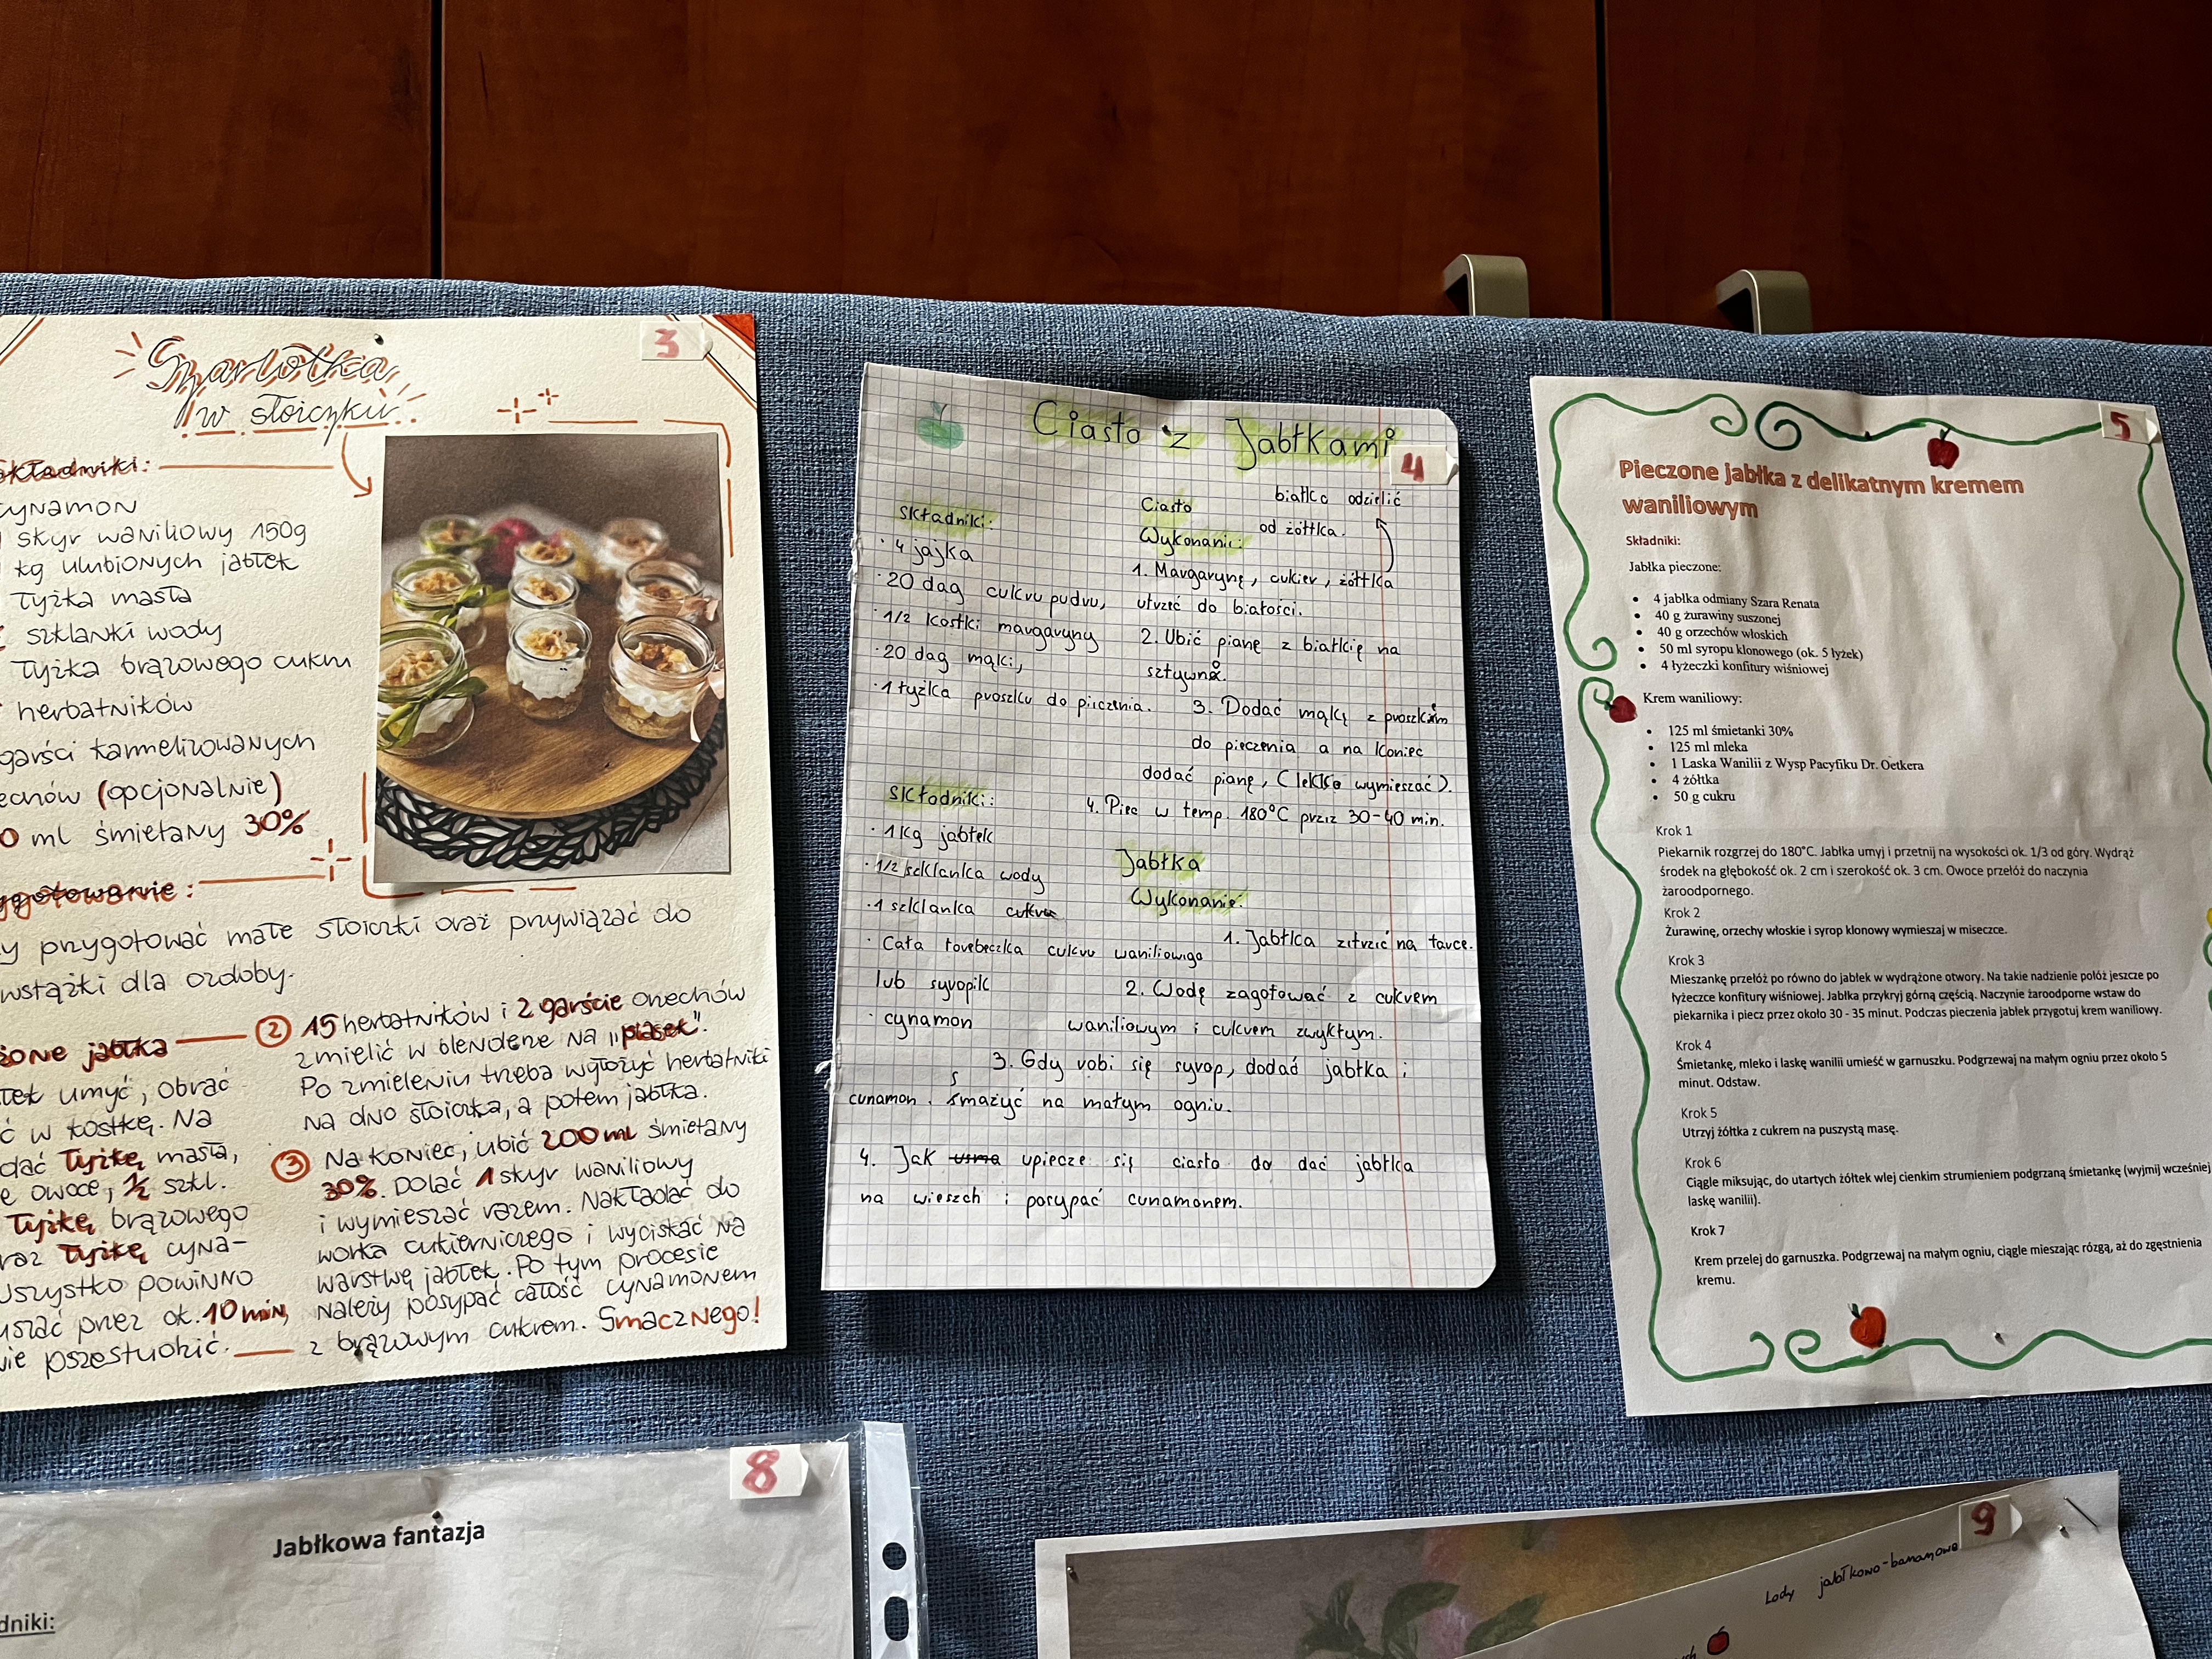 3
Szarlotka
w słoiczku
Składniki:
cynamon
skyr waniliowy 150g
kg ulubionych jabłek
Łyżka masła
szklanki wody
Łyżka brązowego cukru
herbatników
garści karmelizowanych
(opcjonalnie)
ml śmietany 30%
przygotować małe słoiczki oraz przywiązać do
wstążki dla ozdoby.
jabłka
umyć, obrać
w kostkę. Na
Łyżkę masła,
owoce, 1/2 szkl.
Łyżkę brązowego
Łyżkę cyna-
wszystko powinno
przez ok. 10 min,
2 15 herbatników i 2 garście orzechów
zmielić w blenderze na „piasek".
Po zmieleniu trzeba wyłożyć herbatniki
na dno słoiczka, a potem jabłka.
3 Na koniec, ubić 200 ml śmietany
30%. Dolać 1 skyr waniliowy
i wymieszać razem. Nakładać do
worka cukierniczego i wyciskać na
warstwę jabłek. Po tym procesie
należy posypać całość cynamonem
z brązowym cukrem. Smacznego!
4
Ciasto z Jabłkami
Składniki:
· 4 jajka
· 20 dag cukru pudru,
· 1/2 kostki margaryny
· 20 dag mąki,
· 1 łyżka proszku do pieczenia.
Ciasto
Wykonanie:
białko odzielić
od żółtka.
1. Margarynę, cukier, żółtka
utrzeć do białości.
2. Ubić pianę z białkię na
sztywno.
3. Dodać mąkę z proszkim
do pieczenia a na koniec
dodać pianę, (lekko wymieszać).
4. Piec w temp. 180°C przez 30-40 min.
Składniki:
· 1 kg jabłek
· 1/2 szklanka wody
· 1 szklanka cukru
· Cała torebeczka cukru waniliowego
lub syropik
· cynamon
Jabłka
Wykonanie:
1. Jabłka zetrzeć na tarce.
2. Wodę zagotować z cukrem
waniliowym i cukrem zwykłym.
3. Gdy robi się syrop, dodać jabłka i
cunamon. smażyć na małym ogniu.
4. Jak upiecze się ciasto do dać jabłka
na wieszch i posypać cunamonem.
5
Pieczone jabłka z delikatnym kremem
waniliowym
Składniki:
Jabłka pieczone:
• 4 jabłka odmiany Szara Renata
• 40 g żurawiny suszonej
• 40 g orzechów włoskich
• 50 ml syropu klonowego (ok. 5 łyżek)
• 4 łyżeczki konfitury wiśniowej
Krem waniliowy:
• 125 ml śmietanki 30%
• 125 ml mleka
• 1 Laska Wanilii z Wysp Pacyfiku Dr. Oetkera
• 4 żółtka
• 50 g cukru
Krok 1
Piekarnik rozgrzej do 180°C. Jabłka umyj i przetnij na wysokości ok. 1/3 od góry. Wydrąż
środek na głębokość ok. 2 cm i szerokość ok. 3 cm. Owoce przełóż do naczynia
żaroodpornego.
Krok 2
Żurawinę, orzechy włoskie i syrop klonowy wymieszaj w miseczce.
Krok 3
Mieszankę przełóż po równo do jabłek w wydrążone otwory. Na takie nadzienie połóż jeszcze po
łyżeczce konfitury wiśniowej. Jabłka przykryj górną częścią. Naczynie żaroodporne wstaw do
piekarnika i piecz przez około 30 - 35 minut. Podczas pieczenia jabłek przygotuj krem waniliowy.
Krok 4
Śmietankę, mleko i laskę wanilii umieść w garnuszku. Podgrzewaj na małym ogniu przez około 5
minut. Odstaw.
Krok 5
Utrzyj żółtka z cukrem na puszystą masę.
Krok 6
Ciągle miksując, do utartych żółtek wlej cienkim strumieniem podgrzaną śmietankę (wyjmij wcześniej
laskę wanilii).
Krok 7
Krem przelej do garnuszka. Podgrzewaj na małym ogniu, ciągle mieszając rózgą, aż do zgęstnienia
kremu.
8
Jabłkowa fantazja
dniki:
9
Lody jabłkowo-bananowe